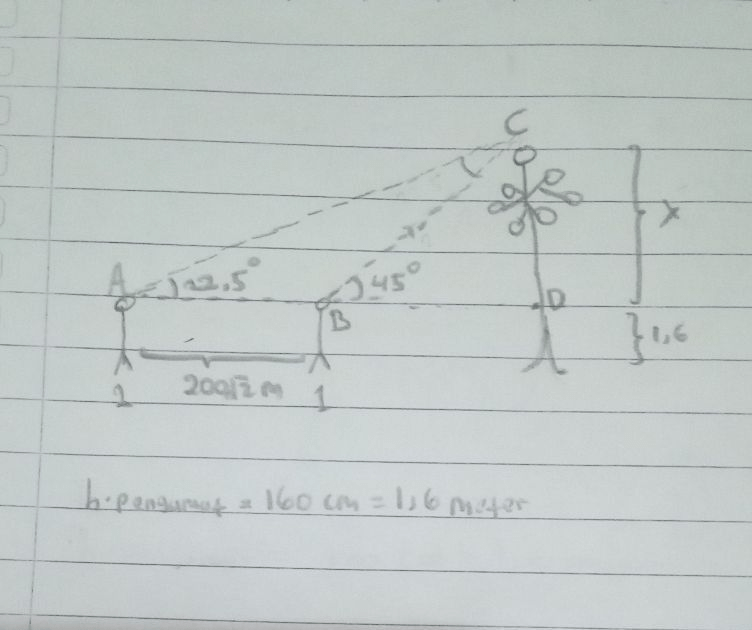 C
x
A 22,5° 45° D
B
1,6
200√2 m
2 1
h. pengamat = 160 cm = 1,6 meter